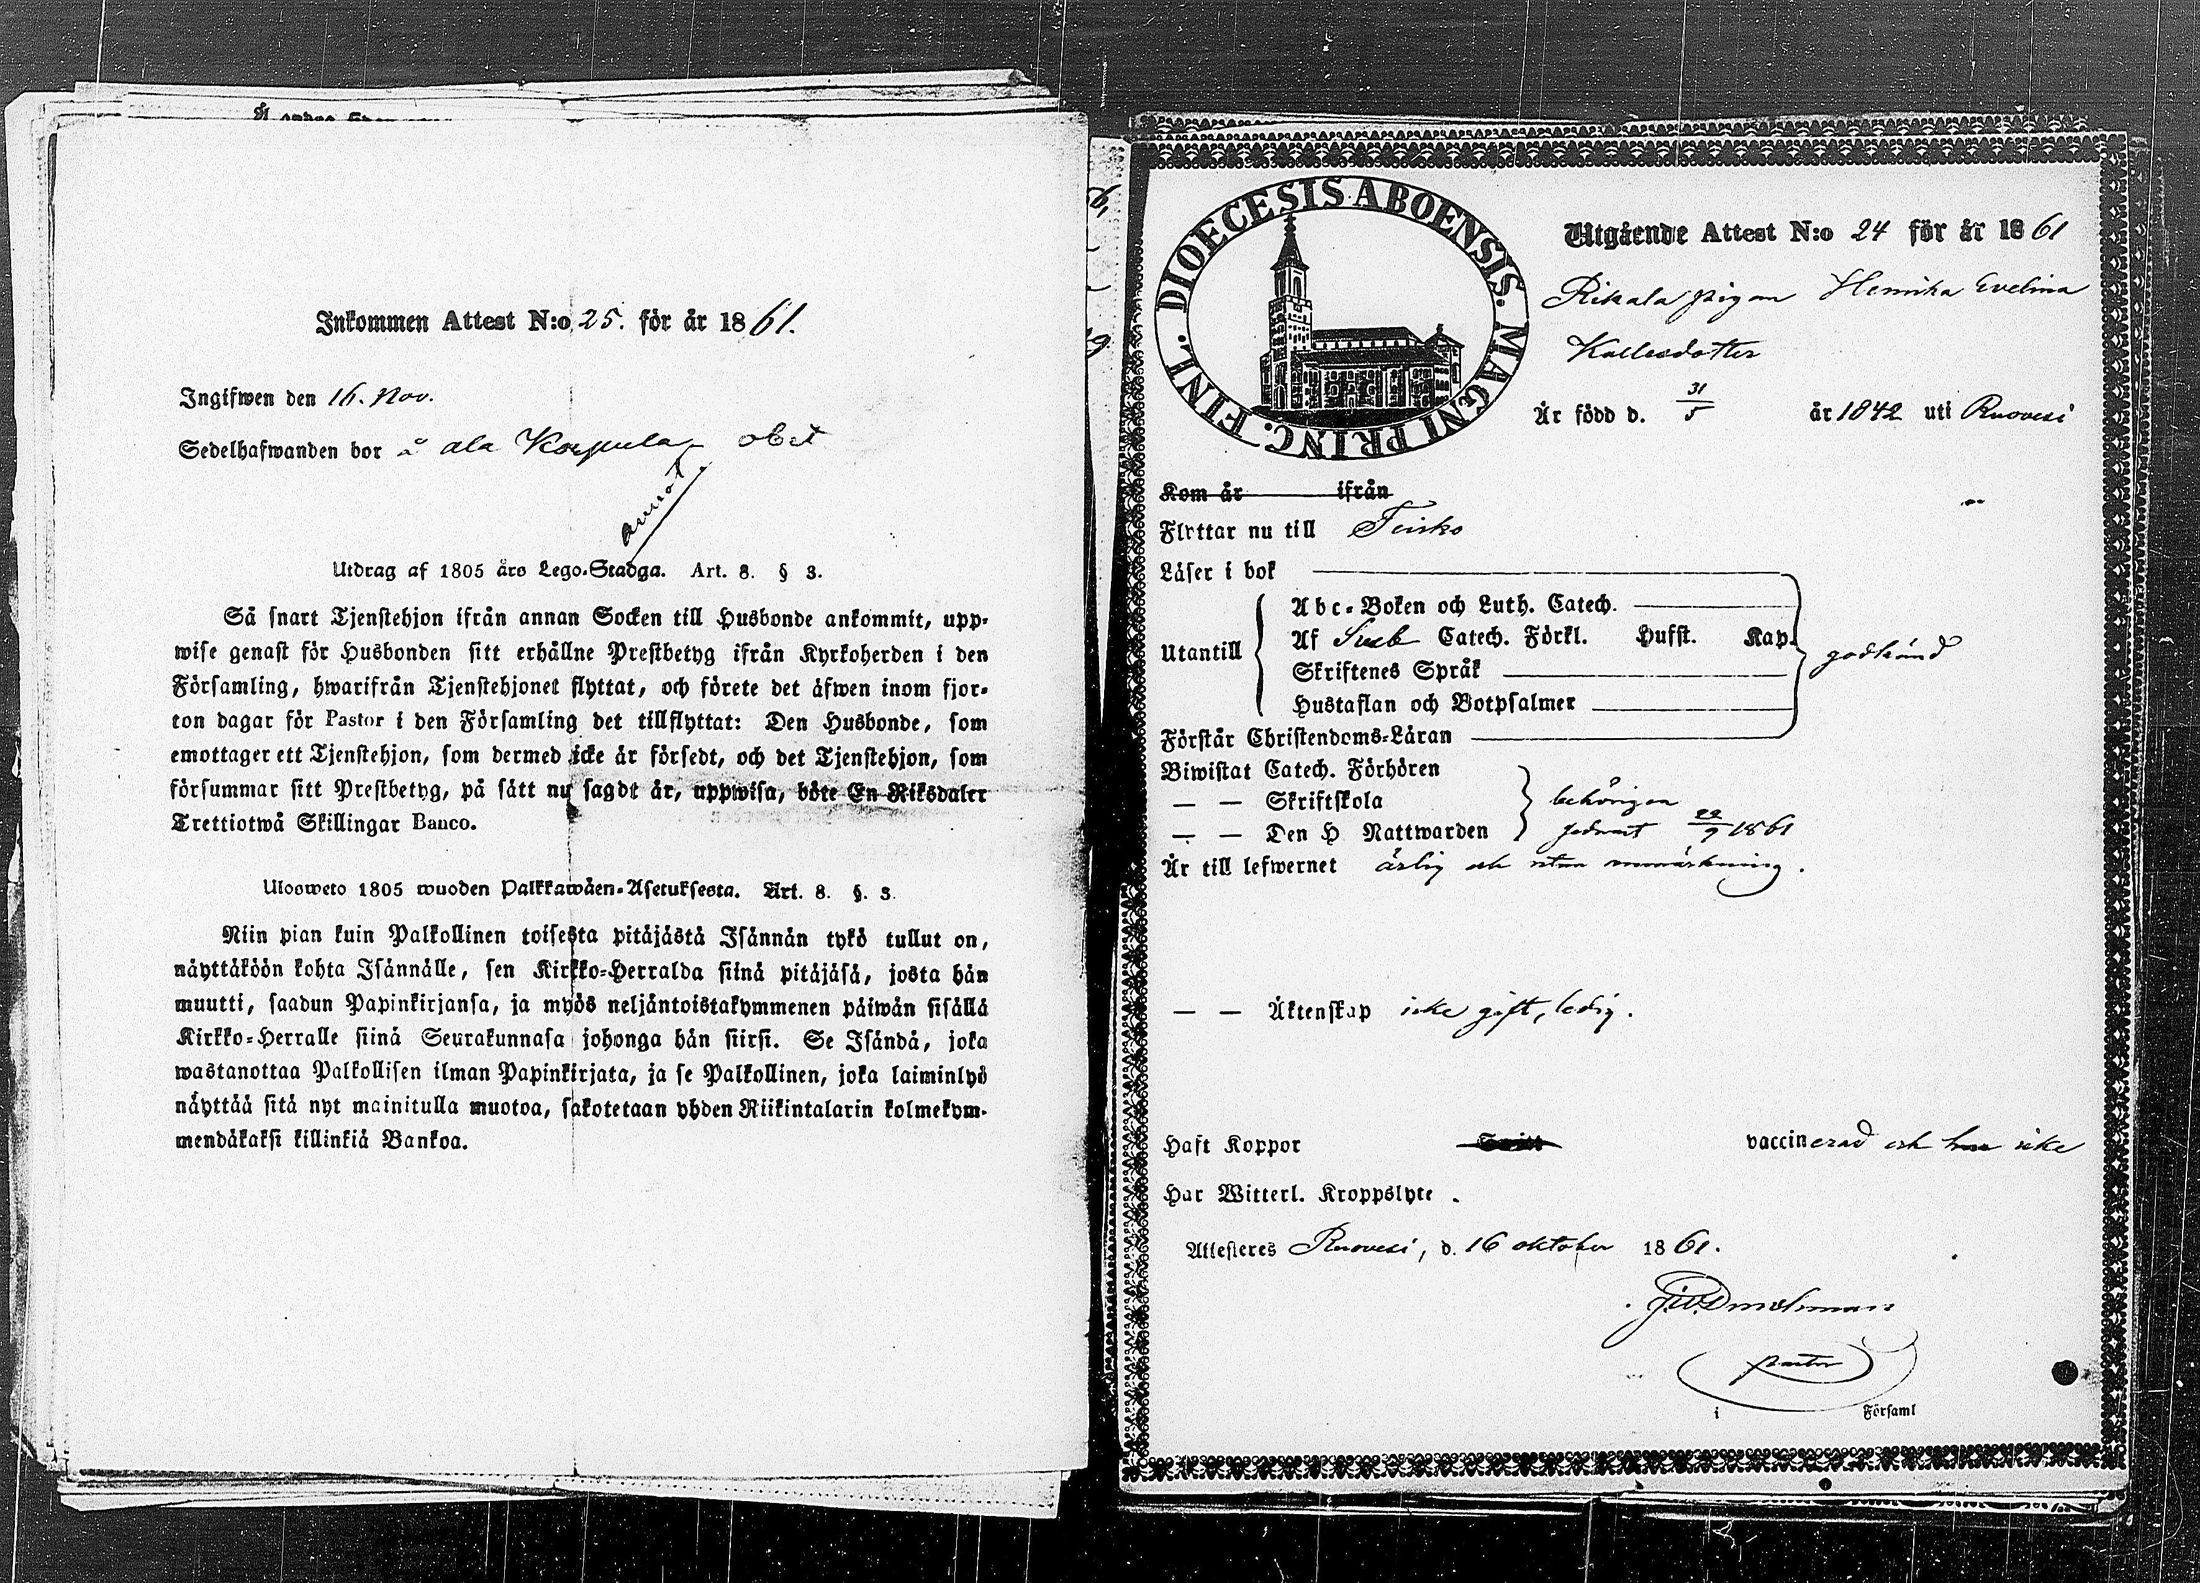 Inkommen Attest N:o 25. för år 1861.
Ingifwen den 16. Nov.
Sedelhafwanden bor å ala Korpula, obet
annot.
Utdrag af 1805 års Lego-Stadga. Art. 8. § 3.
Så snart Tjenstehjon ifrån annan Socken till Husbonde ankommit, upp-
wise genast för Husbonden sitt erhållne Prestbetyg ifrån Kyrkoherden i den
Församling, hwarifrån Tjenstehjonet flyttat, och förete det äfwen inom fjor-
ton dagar för Pastor i den Församling det tillflyttat: Den Husbonde, som
emottager ett Tjenstehjon, som dermed icke är försedt, och det Tjenstehjon, som
försummar sitt Prestbetyg, på sätt nu sagdt är, uppwisa, böte En Riksdaler
Trettiotwå Skillingar Banco.
Ulosweto 1805 wuoden Palkkawäen-Asetuksesta. Art. 8. §. 3.
Niin pian kuin Palkollinen toisesta pitäjästä Isännän tykö tullut on,
näyttäköön kohta Isännälle, sen Kirkko-Herralda siinä pitäjäsä, josta hän
muutti, saadun Papinkirjansa, ja myös neljäntoistakymmenen päiwän sisällä
Kirkko-Herralle siinä Seurakunnasa johonga hän siirsi. Se Isändä, joka
wastanottaa Palkollisen ilman Papinkirjata, ja se Palkollinen, joka laiminlyö
näyttää sitä nyt mainitulla muotoa, sakotetaan yhden Riikintalarin kolmekym-
mendäkaksi killinkiä Bankoa.
DIOECESIS ABOENSIS. MAGNI PRINC. FINL.
Utgående Attest N:o 24 för år 1861
Rikala pigan Henrika Evelina
Kallesdotter
Är född d. 31/5 år 1842 uti Ruovesi
Kom år ifrån
Flyttar nu till Teisko
Läser i bok
Utantill
Abc-Boken och Luth. Catech.
Af Sveb Catech. Förkl. Husft. Kap.
Skriftenes Språk
Hustaflan och Botpsalmer
godkänd
Förstår Christendoms-Läran
Biwistat Catech. Förhören
— — Skriftskola behörigen
— — Den H Nattwarden 22/9 1861
Är till lefwernet ärlig och utan anmärkning.
— — Äktenskap icke gift, ledig.
Haft Koppor vaccinerad och har icke
Har Witterl. Kroppslyte.
Attesteres Ruovesi, d. 16 oktober 1861.
pastor
i Församl